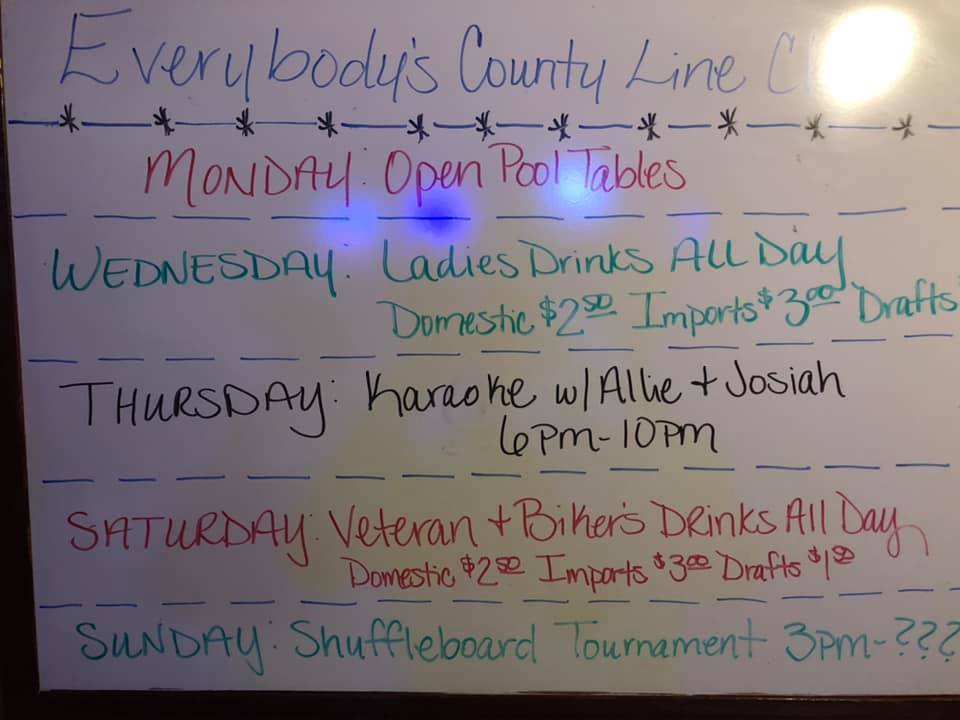 Everybody's County Line
MONDAY: Open Pool Tables
WEDNESDAY: Ladies Drinks All Day
Domestic $2.50 Imports $3.00 Drafts
THURSDAY: Karaoke w/Allie + Josiah
6PM-10PM
SATURDAY: Veteran + Biker's Drinks All Day
Domestic $2.50 Imports $3.00 Drafts $1.50
SUNDAY: Shuffleboard Tournament 3pm-???